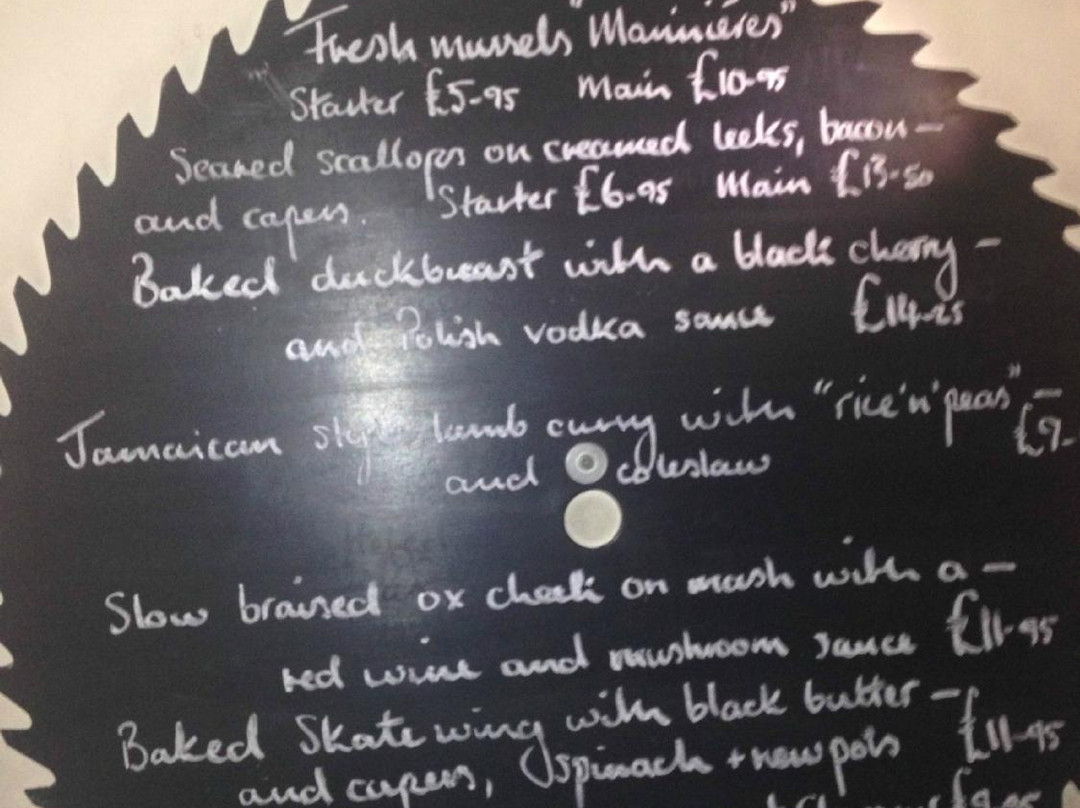 Fresh mussels "Marinières"
Starter £5-95 Main £10-95
Seared scallops on creamed leeks, bacon –
and capers. Starter £6-95 Main £13-50
Baked duckbreast with a black cherry –
and Polish vodka sauce £14-25
Jamaican style lamb curry with "rice 'n' peas" –
and coleslaw £9-
Slow braised ox cheek on mash with a –
red wine and mushroom sauce £11-95
Baked Skate wing with black butter –
and capers, spinach + new pots £11-95